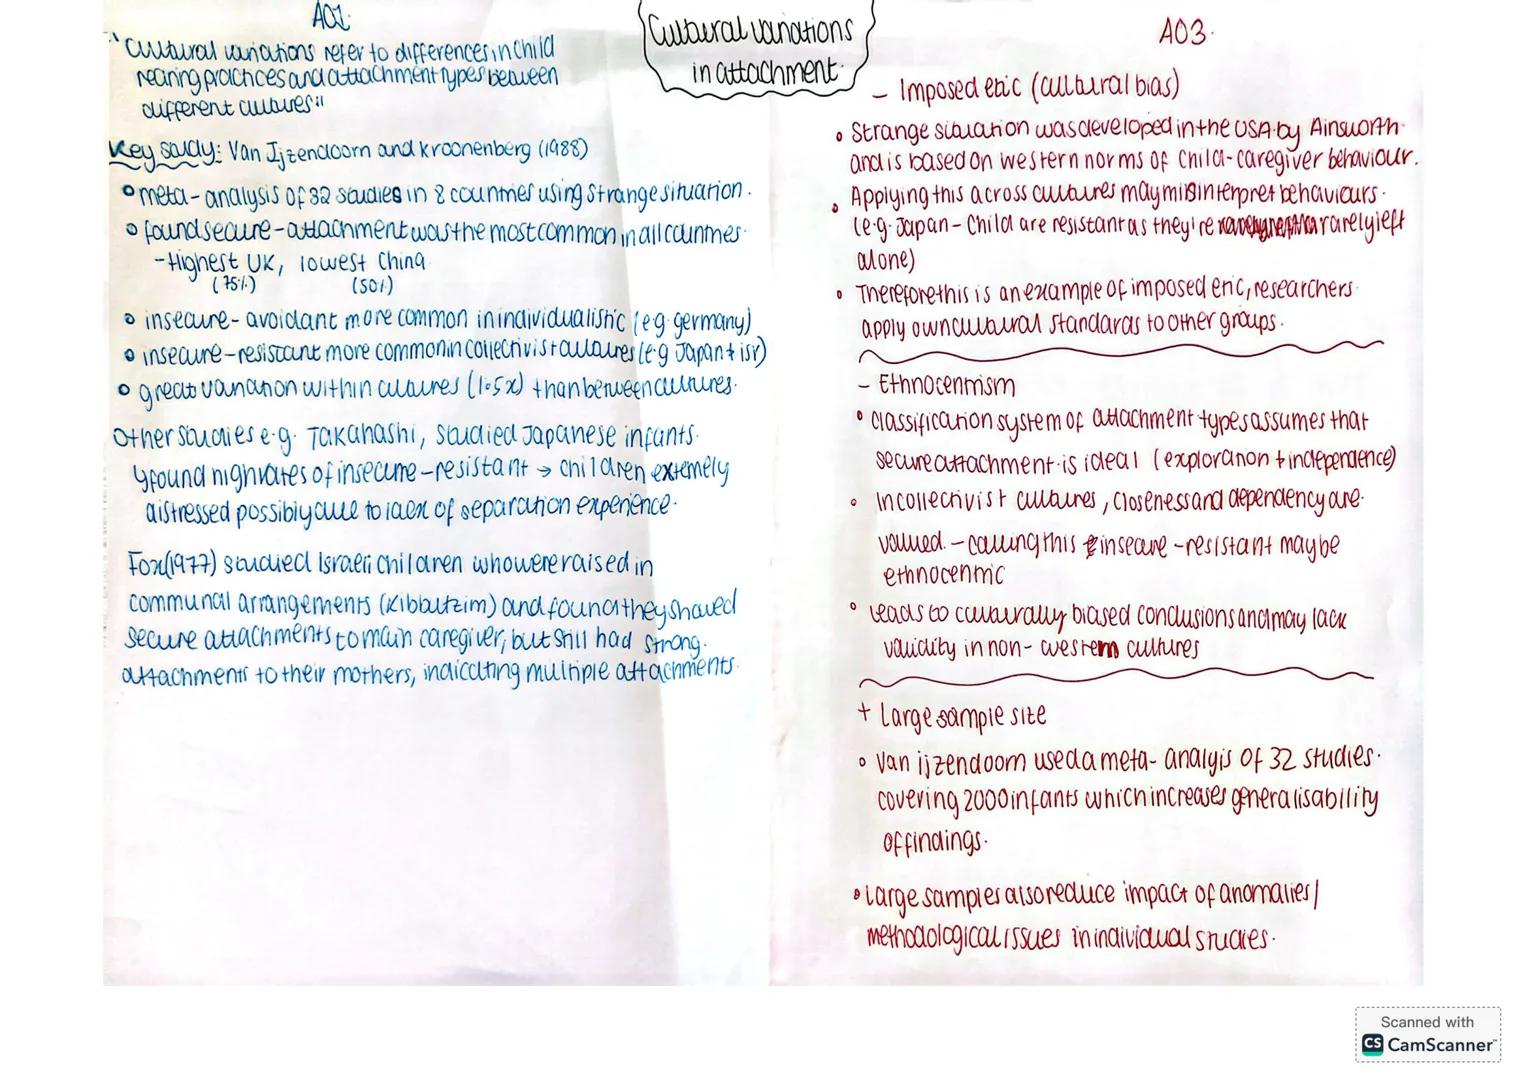 AO1.
Cultural variations
in attachment.
"Cultural variations refer to differences in child
rearing practices and attachment types between
different cultures"
Key study: Van Ijzendoorn and kroonenberg (1988)
meta-analysis of 32 studies in 8 countries using strange situation.
found secure-attachment was the most common in all countries.
-Highest UK, lowest China
(75%) (50%)
insecure-avoidant more common in individualistic (e.g. germany)
insecure-resistant more common in collectivist cultures (e.g Japan + isr)
great variation within cultures (1.5x) than between cultures.
Other studies e.g. Takahashi, studied Japanese infants.
found high rates of insecure-resistant → children extremely
distressed possibly due to lack of separation experience.
Fox (1977) studied Israeli children who were raised in
communal arrangements (Kibbutzim) and found they showed
secure attachments to main caregiver, but still had strong.
attachments to their mothers, indicating multiple attachments.
AO3.
- Imposed etic (cultural bias)
Strange situation was developed in the USA by Ainsworth.
and is based on western norms of child-caregiver behaviour.
Applying this across cultures may misinterpret behaviours.
(e.g. Japan - Child are resistant as they're rarely left
alone)
Therefore this is an example of imposed etic, researchers.
apply own cultural standards to other groups.
- Ethnocentrism
Classification system of attachment types assumes that
secure attachment is ideal (exploration + independence)
In collectivist cultures, closeness and dependency are.
valued. - calling this insecure-resistant may be
ethnocentric
leads to culturally biased conclusions and may lack
validity in non-western cultures
+ Large sample size
Van ijzendoorn used a meta-analyis of 32 studies.
covering 2000 infants which increases generalisability
of findings.
Large samples also reduce impact of anomalies/
methodological issues in individual studies.
Scanned with
CS CamScanner